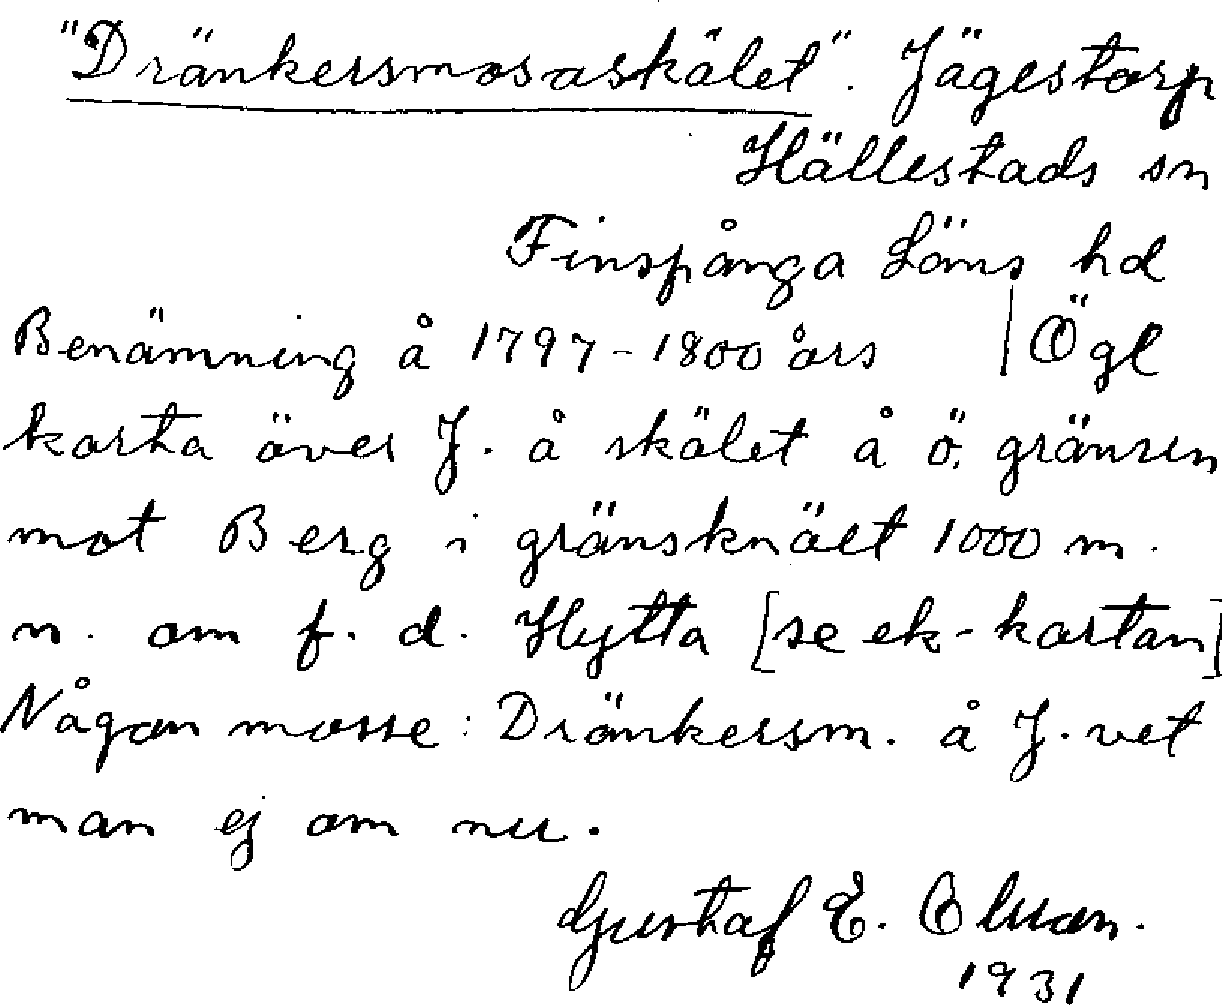 "Dränkersmosaskälet". Jägestorp
Hällestads sn
Finspånga Läns hd
Benämning å 1797-1800 års | Ögl
karta över J. å skälet å ö. gränsen
mot Berg i gränsknäet 1000 m.
n. om f. d. Hytta [se ek-kartan]
Någon mosse: Dränkersm. å J. vet
man ej om nu.
Gustaf E. Olsson.
1931